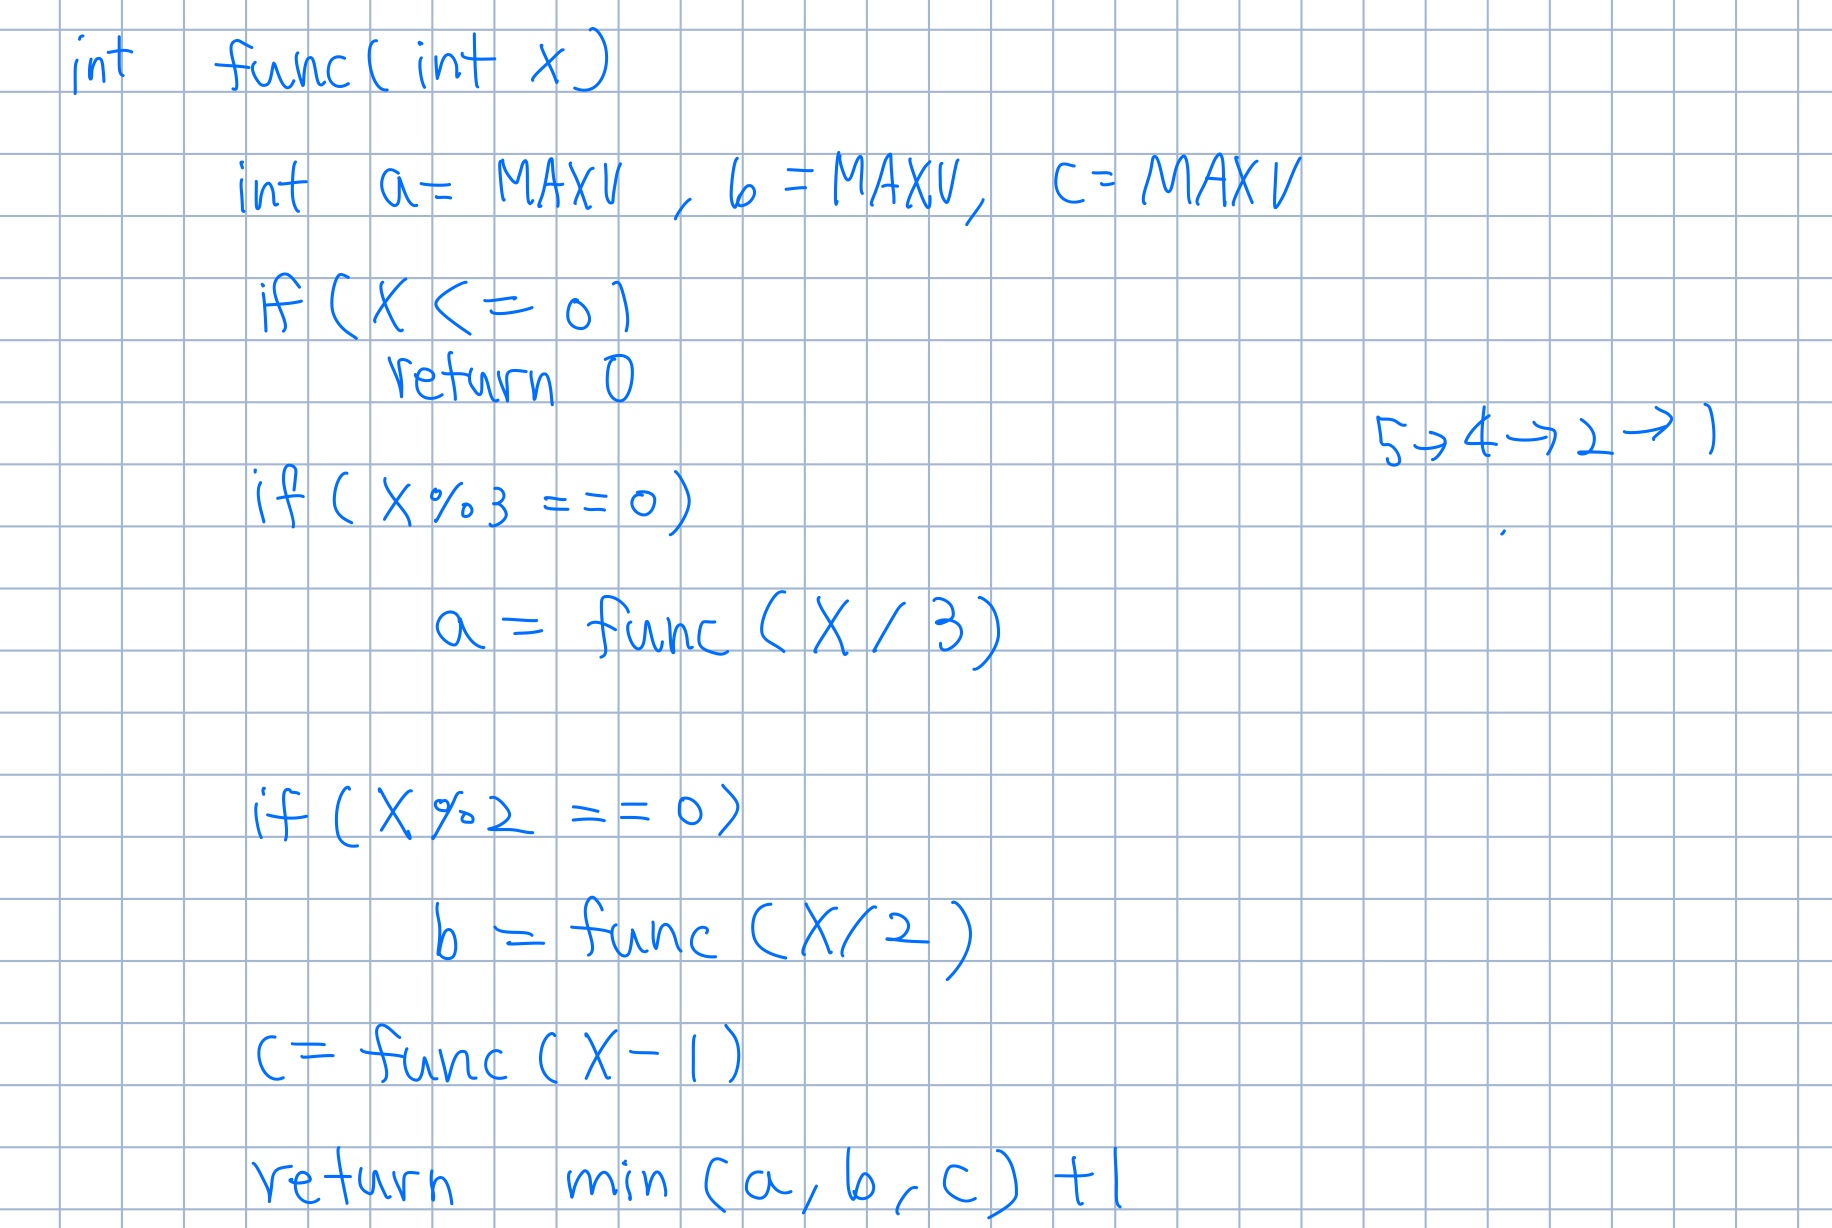 int func(int x)
int a= MAXV, b=MAXV, c=MAXV
if(X<=0)
return 0
5→4→2→1
if(X%3==0)
a= func(X/3)
if(X%2==0)
b = func(X/2)
c= func(X-1)
return min(a,b,c)+1